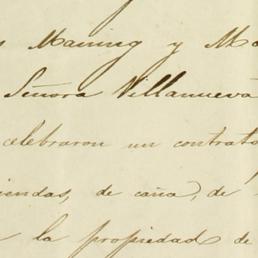 Maining y Ma
Señora Villanueva
celebraron un contrato
iendas, de caña, de
la propiedad de